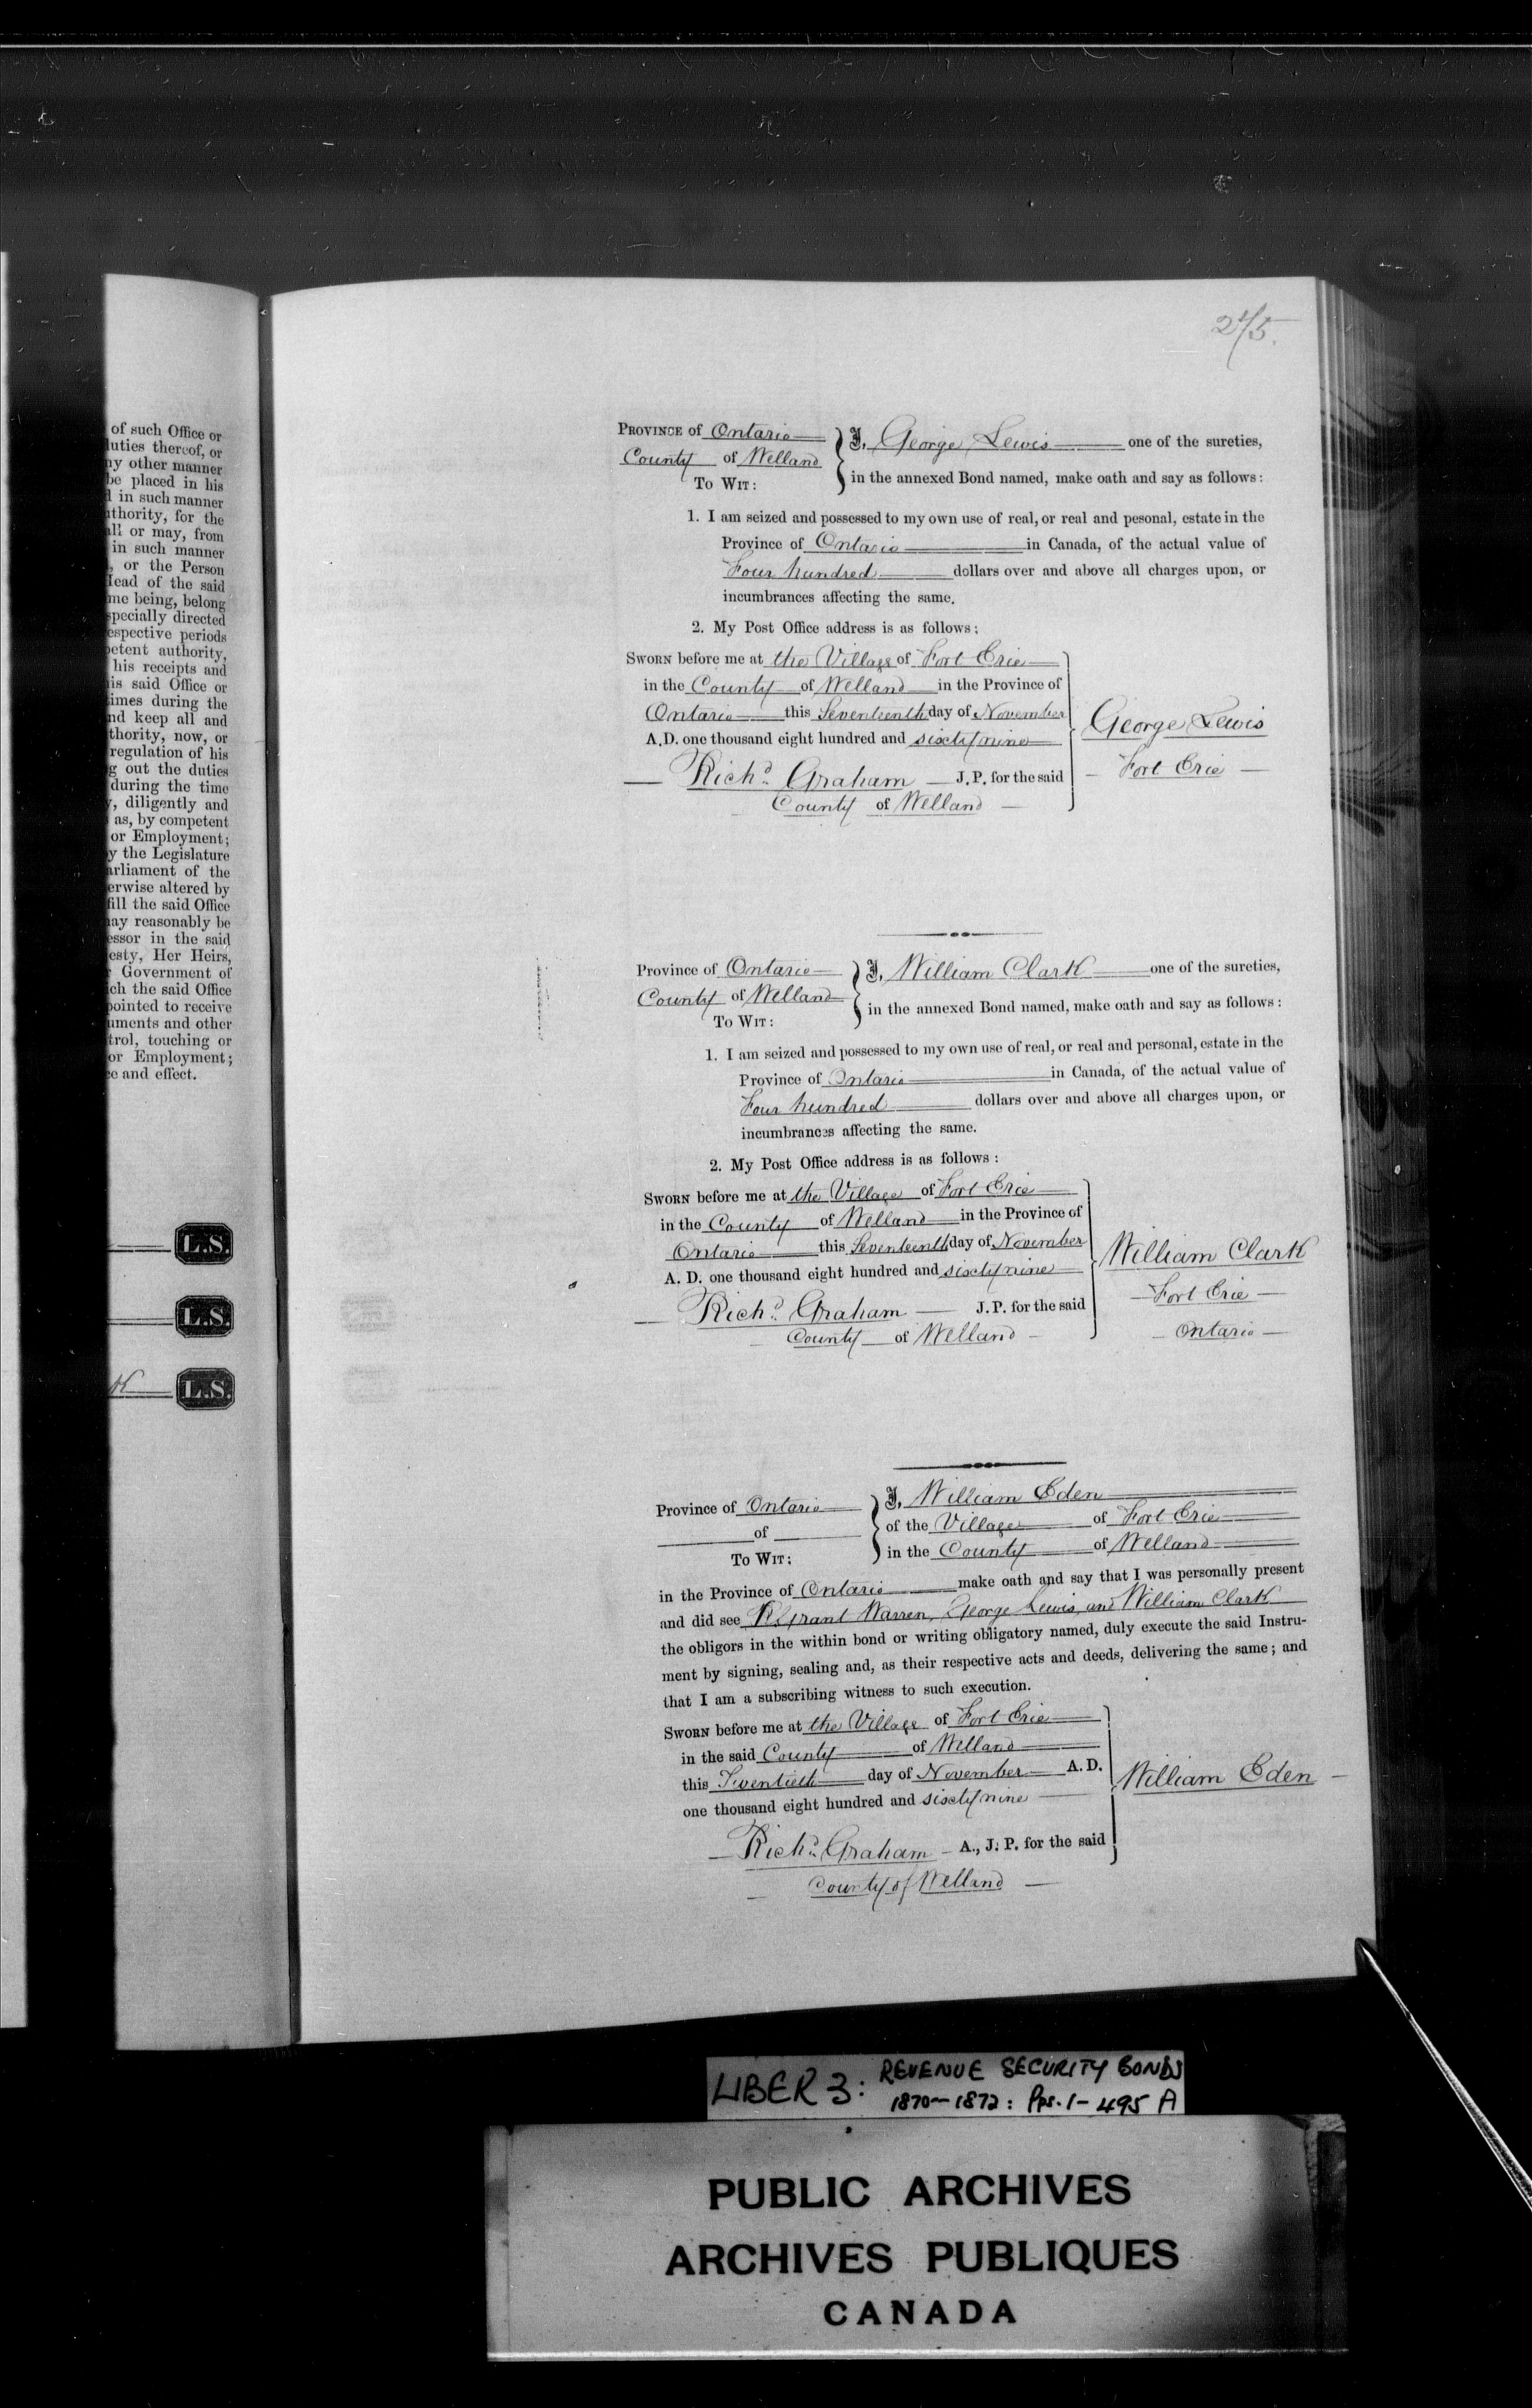 of such Office or
duties thereof, or
ny other manner
be placed in his
d in such manner
uthority, for the
all or may, from
in such manner
, or the Person
Head of the said
me being, belong
specially directed
espective periods
petent authority,
his receipts and
his said Office or
times during the
nd keep all and
uthority, now, or
regulation of his
g out the duties
during the time
y, diligently and
as, by competent
or Employment;
y the Legislature
arliament of the
erwise altered by
fill the said Office
may reasonably be
essor in the said
esty, Her Heirs,
r Government of
ich the said Office
pointed to receive
uments and other
trol, touching or
or Employment;
ce and effect.
L.S.
L.S.
L.S.
PROVINCE of Ontario
I, George Lewis one of the sureties,
County of Welland
in the annexed Bond named, make oath and say as follows:
TO WIT:
1. I am seized and possessed to my own use of real, or real and pesonal, estate in the
Province of Ontario in Canada, of the actual value of
Four hundred dollars over and above all charges upon, or
incumbrances affecting the same.
2. My Post Office address is as follows:
SWORN before me at the Village of Fort Erie
in the County of Welland in the Province of
Ontario this Seventeenth day of November
A.D. one thousand eight hundred and sixty nine
George Lewis
Richd. Graham J.P. for the said
Fort Erie
County of Welland
Province of Ontario
I, William Clark one of the sureties,
County of Welland
in the annexed Bond named, make oath and say as follows:
TO WIT:
1. I am seized and possessed to my own use of real, or real and personal, estate in the
Province of Ontario in Canada, of the actual value of
Four hundred dollars over and above all charges upon, or
incumbrances affecting the same.
2. My Post Office address is as follows:
SWORN before me at the Village of Fort Erie
in the County of Welland in the Province of
Ontario this Seventeenth day of November
William Clark
A. D. one thousand eight hundred and sixty nine
Fort Erie
Richd. Graham J.P. for the said
Ontario
County of Welland
Province of Ontario
I, William Eden
of
of the Village of Fort Erie
TO WIT:
in the County of Welland
in the Province of Ontario make oath and say that I was personally present
and did see Grant Warren, George Lewis, and William Clark
the obligors in the within bond or writing obligatory named, duly execute the said Instru-
ment by signing, sealing and, as their respective acts and deeds, delivering the same; and
that I am a subscribing witness to such execution.
SWORN before me at the Village of Fort Erie
in the said County of Welland
this Twentieth day of November A.D.
William Eden
one thousand eight hundred and sixty nine
Richd. Graham A., J. P. for the said
County of Welland
LIBER 3: REVENUE SECURITY BONDS
1870-1872: Pps. 1-495 A
PUBLIC ARCHIVES
ARCHIVES PUBLIQUES
CANADA